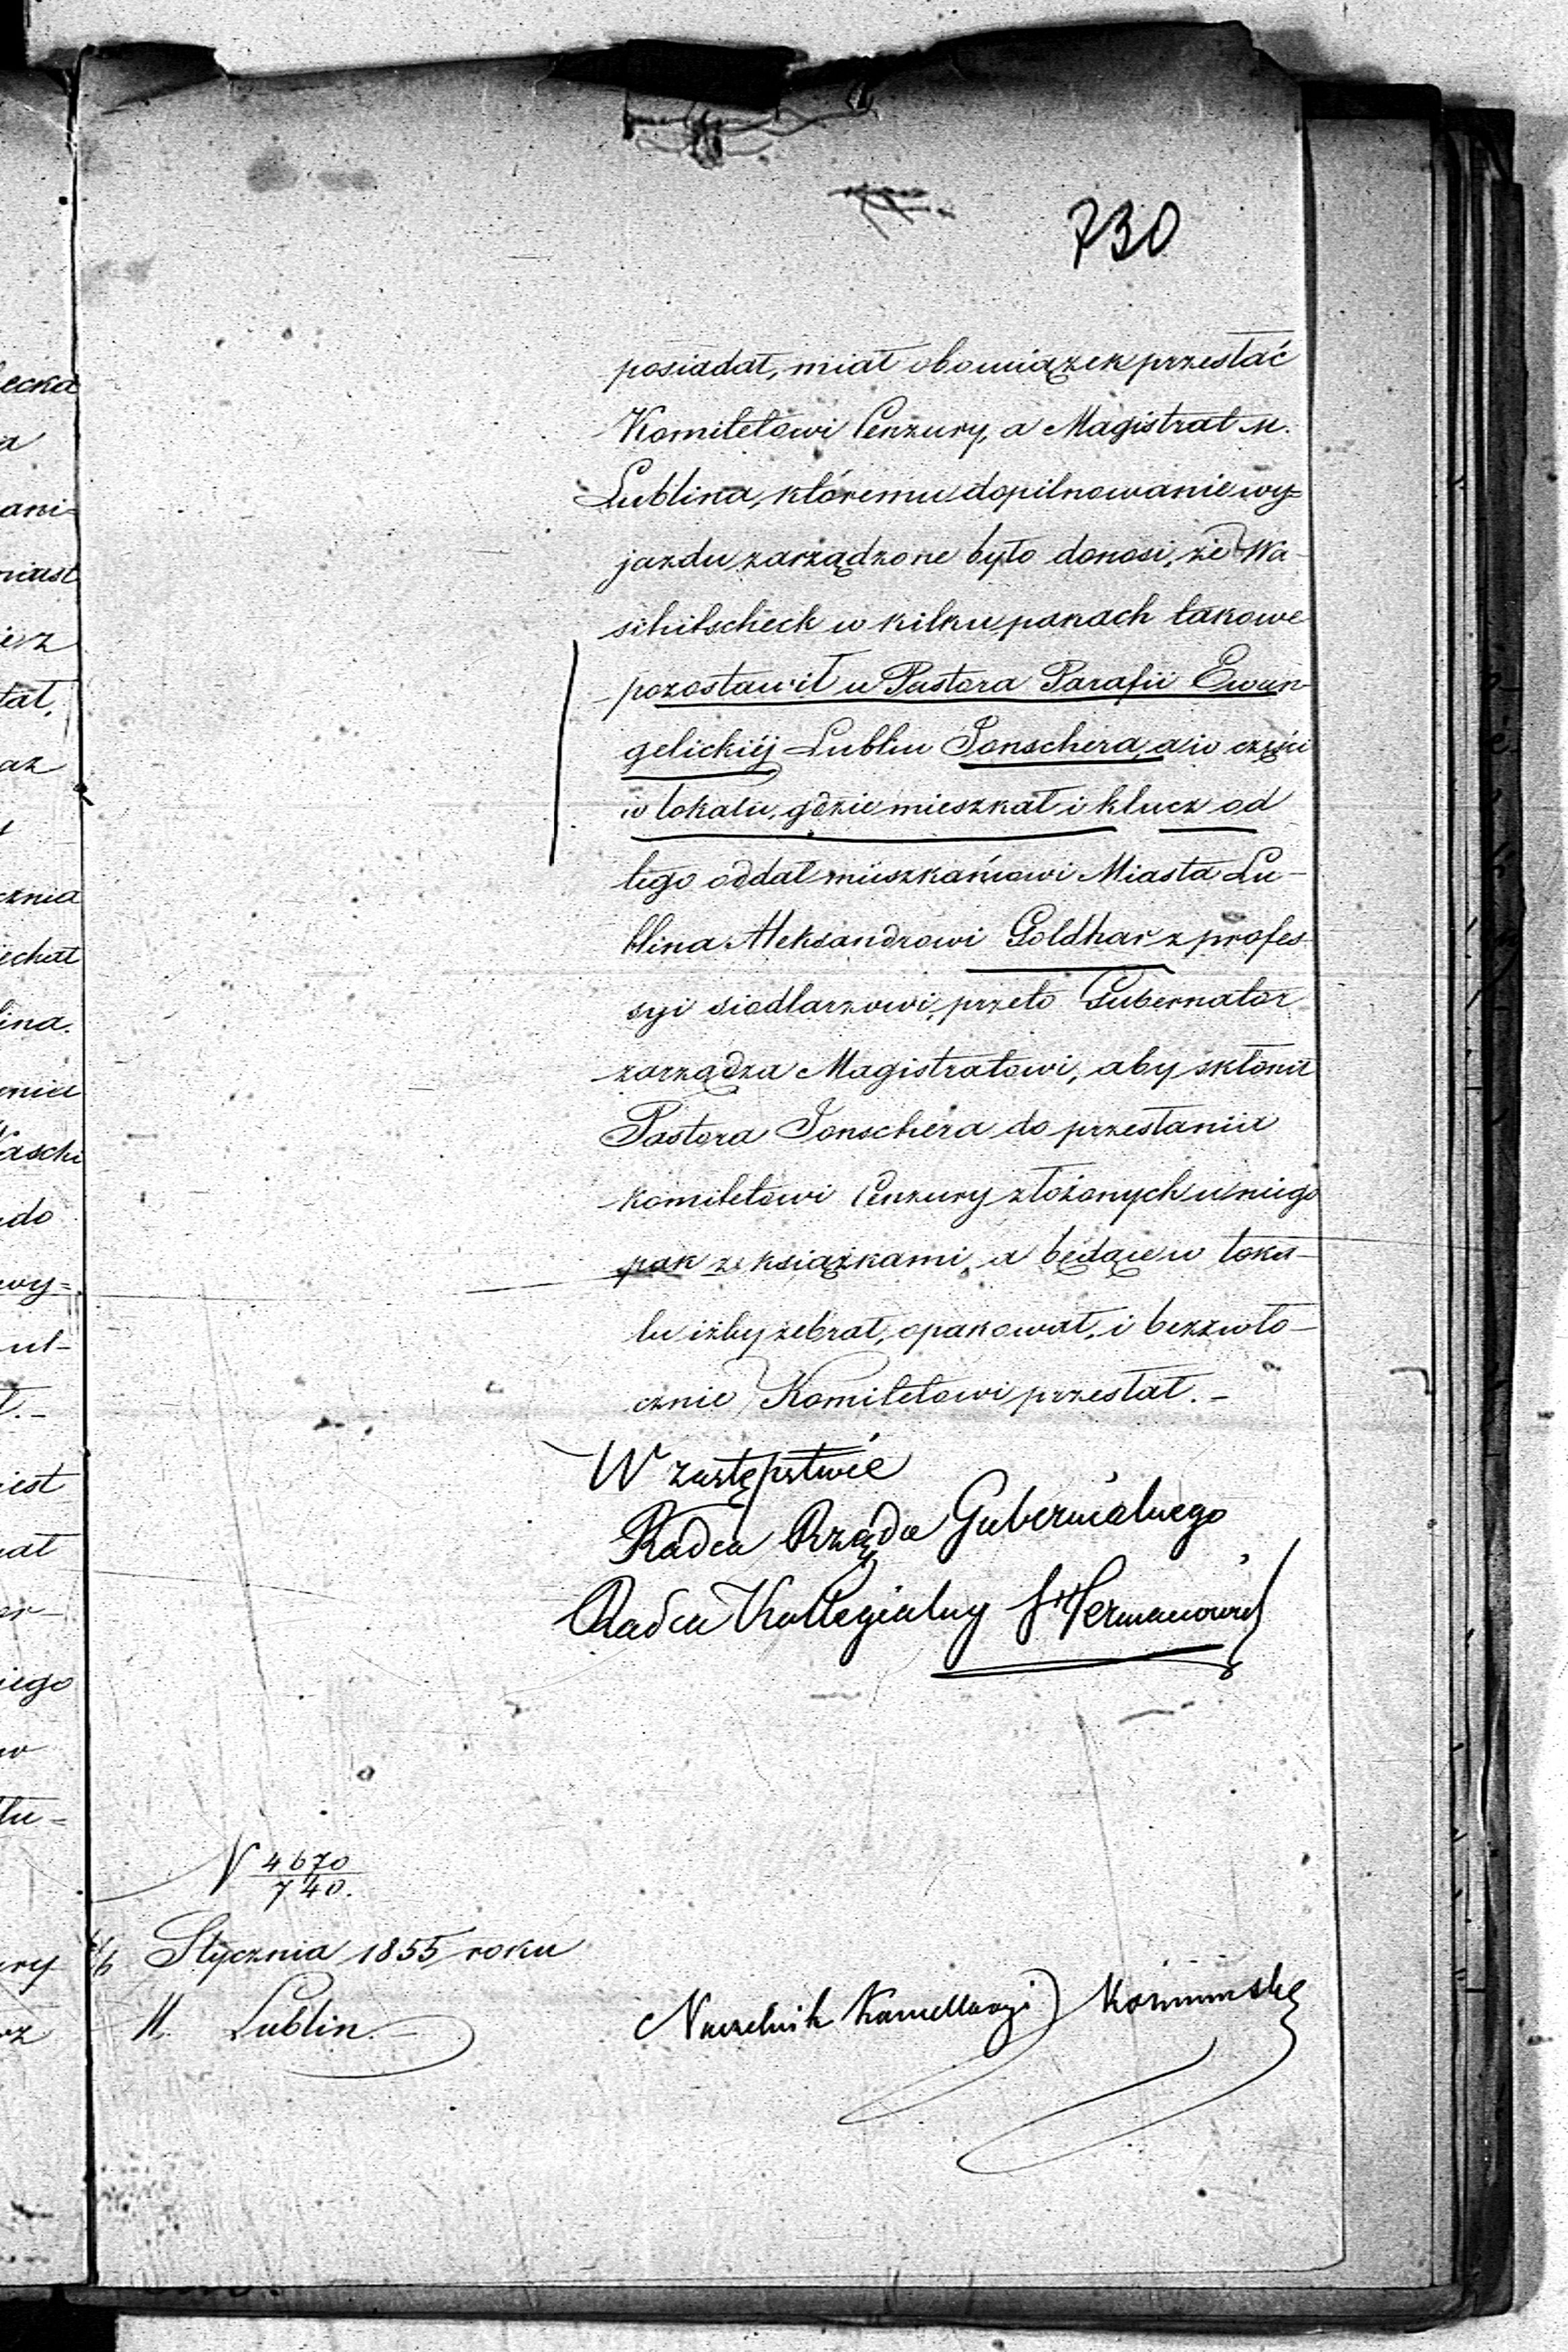 730
posiadał, miał obowiązek przesłać
Komitetowi Cenzury, a Magistrat M.
Lublina, któremu dopilnowanie wy=
jazdu zarządzone było donosi, że Wa-
schitscheck w kilku pakach takowe
pozostawił u Pastora Parafii Ewan-
gelickiéj Lublin Jonschera, a w części
w lokalu, gdzie mieszkał i klucz od
tego oddał mieszkańcowi Miasta Lu-
blina Aleksandrowi Goldhar z profes-
syi siodlarzowi, przeto Gubernator
zarządza Magistratowi, aby skłonił
Pastora Jonschera do przesłania
Komitetowi Cenzury złożonych u niego
pak z książkami, a będące w loka-
lu iżby zebrał, opakował, i bezzwło-
cznie Komitetowi przesłał. -
W zastępstwie
Radca Rządu Gubernialnego
Radca Kollegialny Hermanowicz
N 4670
740.
Stycznia 1855 roku
M. Lublin. -
Naczelnik Kancellaryi
ecka
a
ani=
miast
tał,
az
cznia
echał
lina.
Waschi
do
wy=
ul-
iest
iego
w
ry
rz